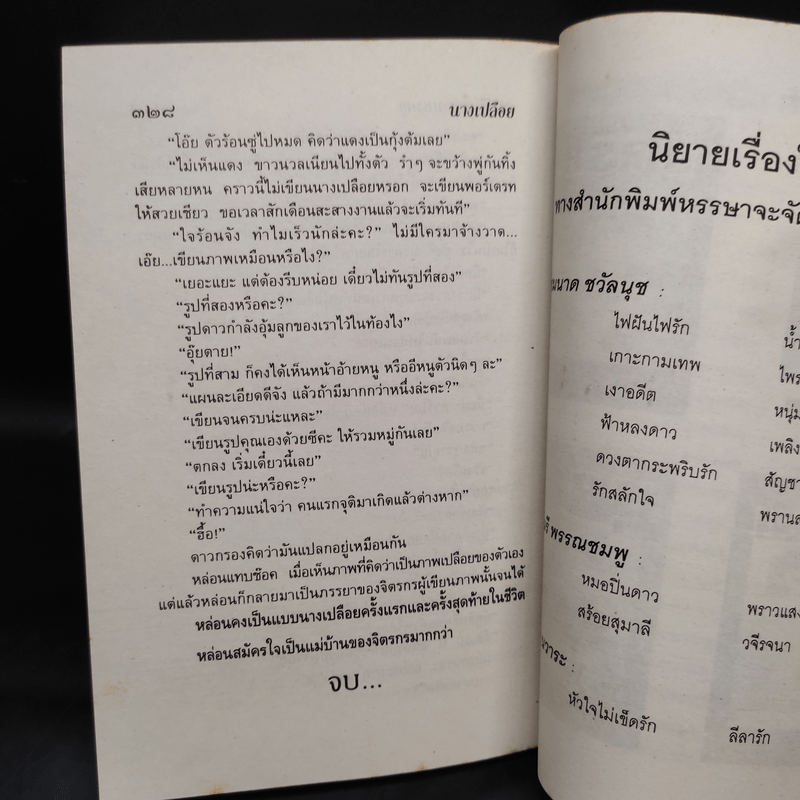 ๓๒๘
นางเปลือย
“โอ๊ย ตัวร้อนซู่ไปหมด คิดว่าแดงเป็นกุ้งต้มเลย”
“ไม่เห็นแดง ขาวนวลเนียนไปทั้งตัว รำๆ จะขว้างพู่กันทิ้ง
เสียหลายหน คราวนี้ไม่เขียนนางเปลือยหรอก จะเขียนพอร์เตรท
ให้สวยเชียว ขอเวลาสักเดือนสะสางงานแล้วจะเริ่มทันที”
“ใจร้อนจัง ทำไมเร็วนักล่ะคะ?” ไม่มีใครมาจ้างวาด...
เอ๊ย...เขียนภาพเหมือนหรือไง?”
“เยอะแยะ แต่ต้องรีบหน่อย เดี๋ยวไม่ทันรูปที่สอง”
“รูปที่สองหรือคะ?”
“รูปดาวกำลังอุ้มลูกของเราไว้ในท้องไง”
“อุ๊ยตาย!”
“รูปที่สาม ก็คงได้เห็นหน้าอ้ายหนู หรืออีหนูตัวนิดๆ ละ”
“แผนละเอียดดีจัง แล้วถ้ามีมากกว่าหนึ่งล่ะคะ?”
“เขียนจนครบน่ะแหละ”
“เขียนรูปคุณเองด้วยซีคะ ให้รวมหมู่กันเลย”
“ตกลง เริ่มเดี๋ยวนี้เลย”
“เขียนรูปน่ะหรือคะ?”
“ทำความแน่ใจว่า คนแรกจุติมาเกิดแล้วต่างหาก”
“ฮื้อ!”
ดาวกรองคิดว่ามันแปลกอยู่เหมือนกัน
หล่อนแทบช๊อค เมื่อเห็นภาพที่คิดว่าเป็นภาพเปลือยของตัวเอง
แต่แล้วหล่อนก็กลายมาเป็นภรรยาของจิตรกรผู้เขียนภาพนั้นจนได้
หล่อนคงเป็นแบบนางเปลือยครั้งแรกและครั้งสุดท้ายในชีวิต
หล่อนสมัครใจเป็นแม่บ้านของจิตรกรมากกว่า
จบ...
นิยายเรื่อง
ทางสำนักพิมพ์หรรษาจะจัด
ชวัลนุช :
ไฟฝันไฟรัก
เกาะกามเทพ
เงาอดีต
ฟ้าหลงดาว
ดวงตากระพริบรัก
รักสลักใจ
น้ำ
ไพร
หนุ่ม
เพลิง
สัญชา
พรานส
พรรณชมพู :
หมอปิ่นดาว
สร้อยสุมาลี
พราวแสง
วจีรจนา
วาระ:
หัวใจไม่เข็ดรัก
ลีลารัก